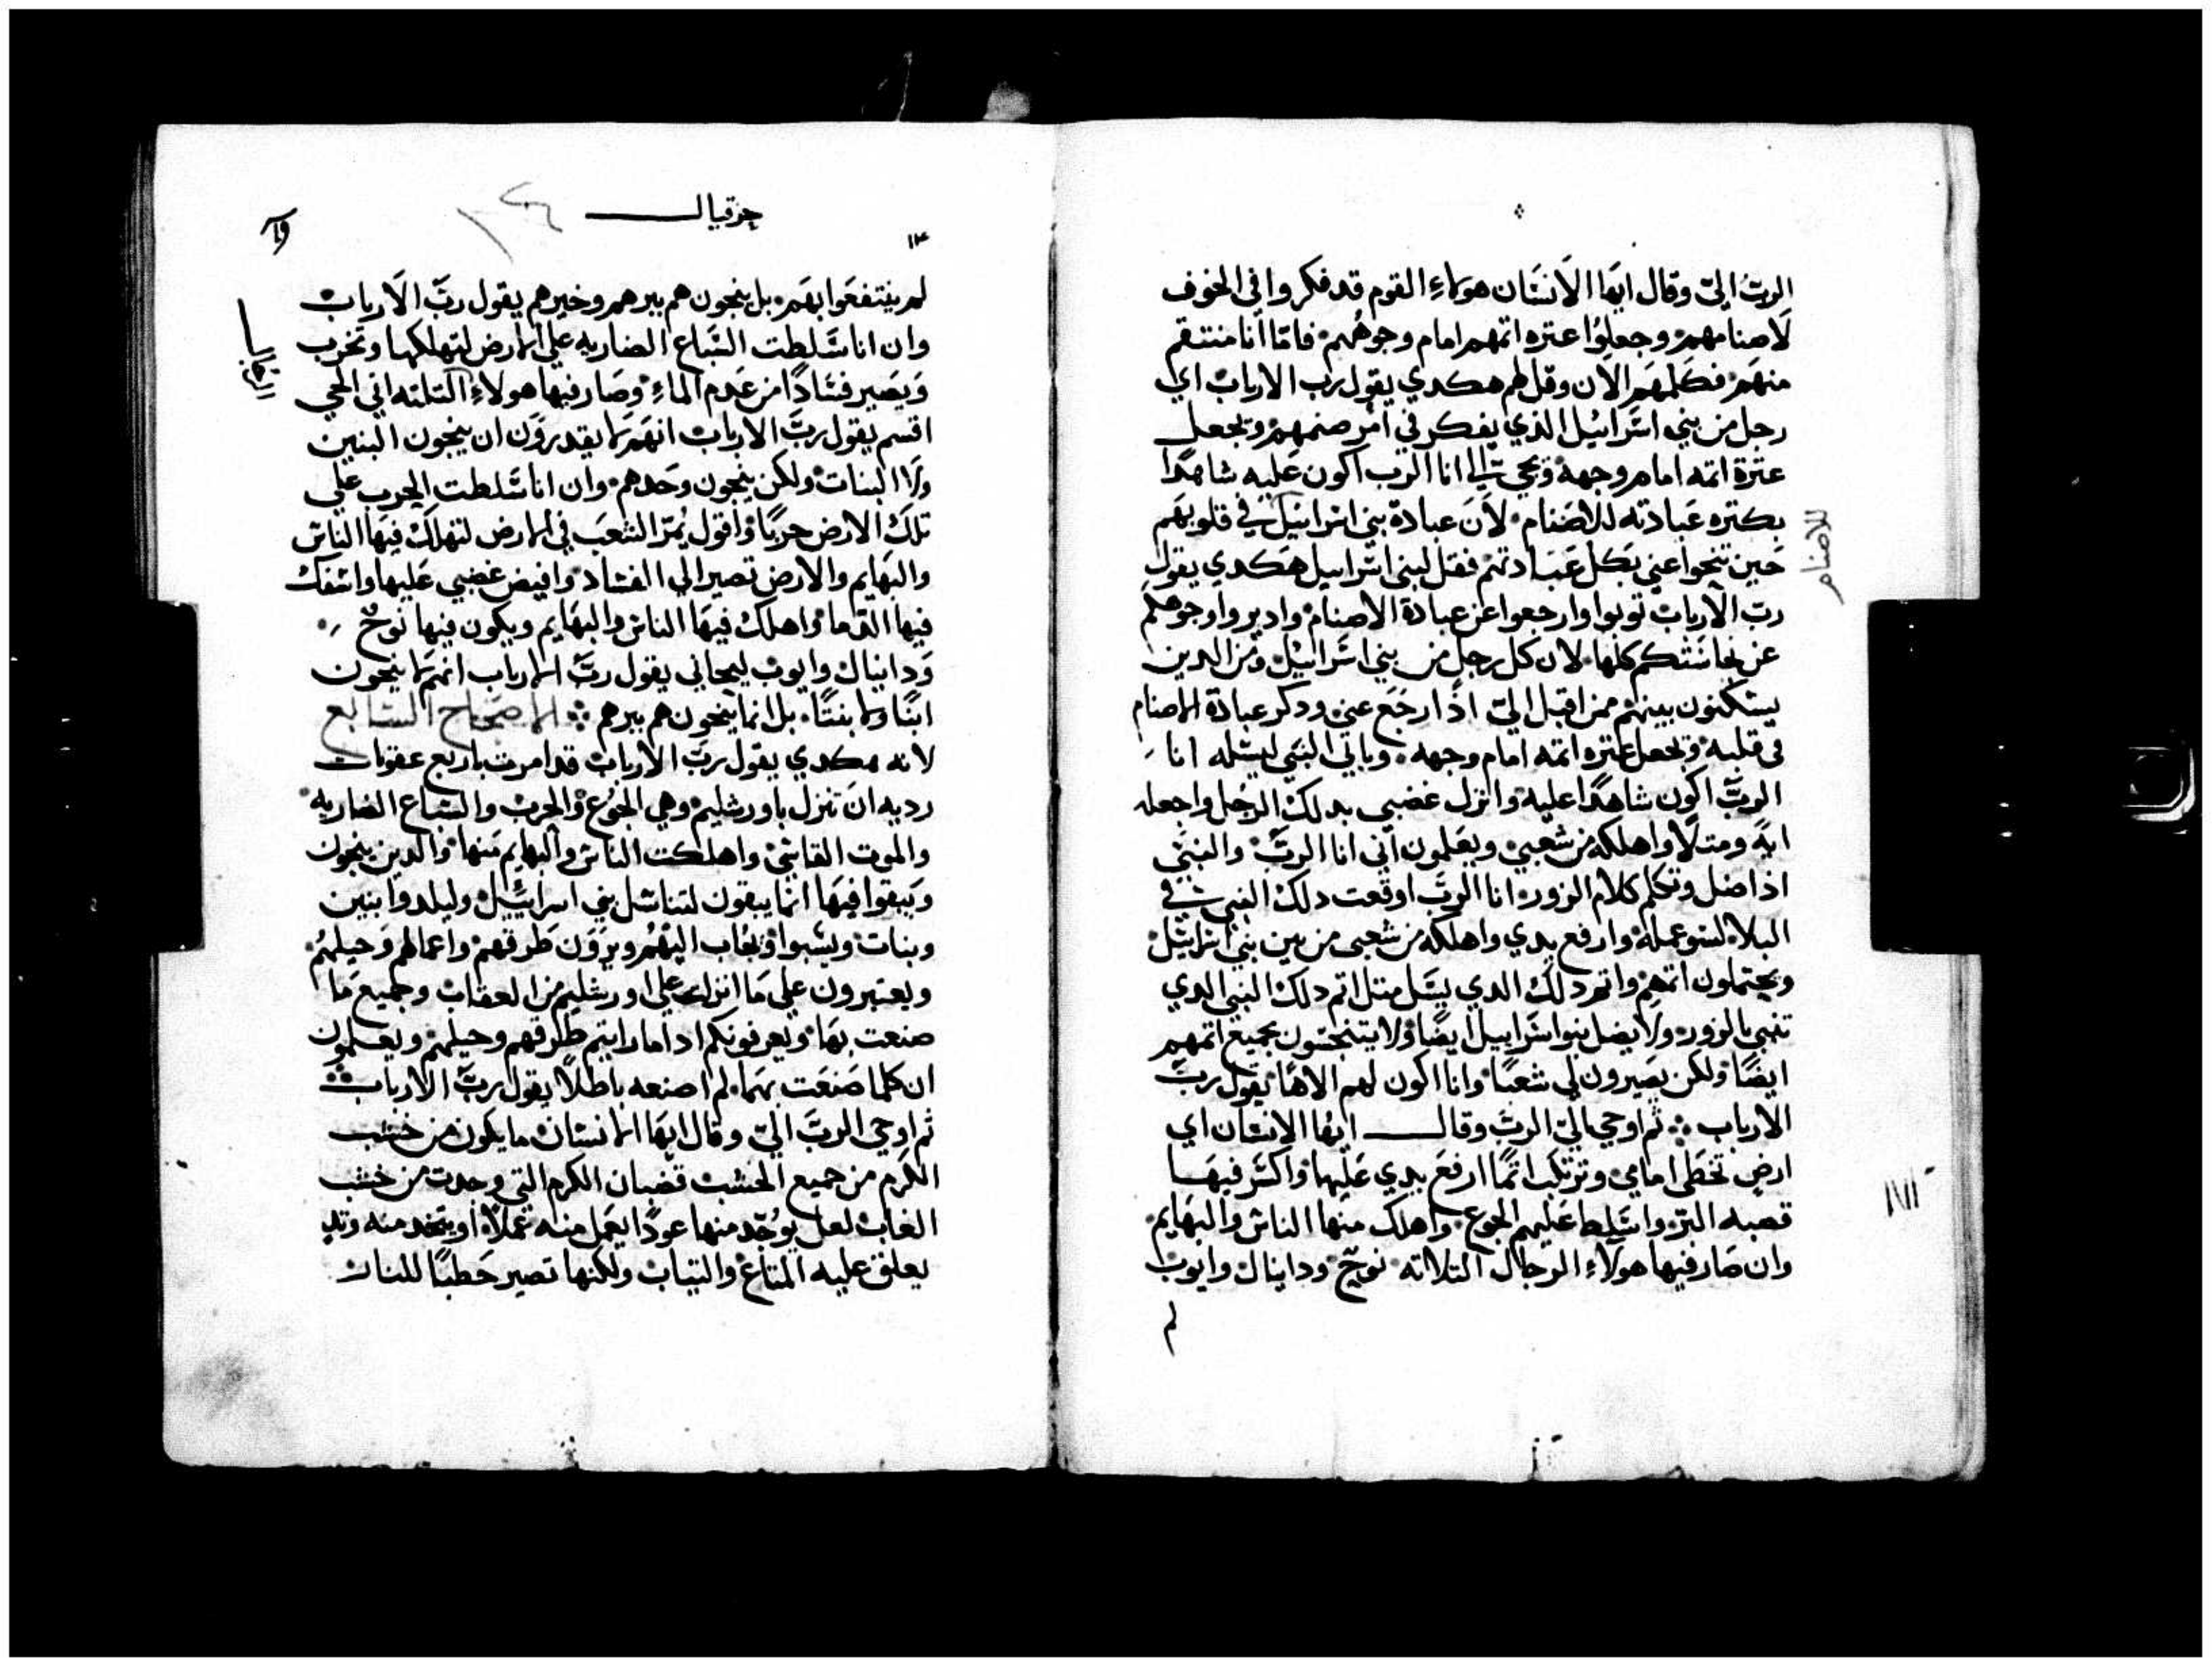 الربّ اليّ وقال ايها الانسان هولاء القوم قد فكروا في الخوف
لاصنامهم وجعلوا عتره اتمهم امام وجوههم فاما انا منتقم
منهم فكلمهم الان وقل لهم هكدي يقول رب الارباب اي
رجل من بني اسرائيل الذي يفكر في امر صنمهم ويجعل
عثرة اتمه امام وجهه ويجي الي انا الرب اكون عليه شاهدا
بكتره عبادته للاصنام لان عبادة بني اسرائيل في قلوبهم
للاصنام
حين تنحوا عني بكل عبادتهم فقل لبني اسراييل هكدي يقول
رب الارباب توبوا وارجعوا عن عبادة الاصنام وادبروا وجوهكم
عن نجاستكم كلها لان كل رجل من بني اسرائيل ومن الدين
يسكنون بينهم ممن اقبل اليّ اذا رجع عني ودكر عبادة الاصنام
في قلبه وتحصل عتره اتمه امام وجهه وياتي النبي ليسله انا
الربّ اكون شاهدا عليه وانزل غضبي بدلك الرجل واجعله
ايه ومتلا واهلكه من شعبي ويعلمون اني انا الربّ والنبي
اذا ضل وتكلم كلام الزور انا الربّ اوقعت دلك النبي في
البلا لسو عمله وارفع يدي واهلكه من شعبي من بين بني اسرائيل
ويحتملون اتمهم واتم دلك الدي يسل متل اتم دلك النبي الدي
تنبي بالزور ولا يضل بنوا اسراييل ايضا ولا يتنجسون بجميع اتمهم
ايضا ولكن يصيرون لي شعبا وانا اكون لهم الاها يقول ربّ
الارباب ثم اوحي اليّ الربّ وقال ايها الانسان اي
ارض تخطي امامي وترتكب اتما ارفع يدي عليها واكسر فيها
قصبه البرّ واسلط عليهم الجوع واهلك منها الناس والبهايم
وان صار فيها هولاء الرجال التلاته نوح ودانيال وايوب
لم
حزقيال
١٣
لم ينتفعوا بهم بل ينجون هم ببرهم وخيرهم يقول ربّ الارباب
وان انا سلطت السباع الضاريه علي الارض لتهلكها وتخرب
ويصير فسادا من عدم الماء وصار فيها هولاء التلته اني الحي
اقسم يقول ربّ الارباب انهم لا يقدرون ان ينجون البنين
ولا البنات ولكن ينجون وحدهم وان انا سلطت الحرب علي
تلك الارض حربا واقول يمرّ الشعب في الارض لتهلك فيها الناس
والبهايم والارض تصير الي الفساد وافيض غضبي عليها واسفك
فيها الدما واهلك فيها الناس والبهايم ويكون فيها نوح
ودانيال وايوب ليحاني يقول ربّ الارباب انهم لا ينجون
ابنا ولا بنتا بل انما ينجون هم ببرهم الاصحاح السابع
لانه هكدي يقول ربّ الارباب قد امرت باربع عقوبات
رديه ان تنزل باورشليم وهي الجوع والحرب والسباع الضاريه
والموت القاسي واهلكت الناس والبهايم منها والدين ينجون
ويبقوا فيها انما يبقون لتناسل بني اسرائيل وليلدوا بنين
وبنات ويسبوا اليهم ويرون طرقهم واعمالهم وحيلهم
ويعتبرون علي ما انزلت علي اورشليم من العقاب وجميع ما
صنعت بها ويعرفونكم ادا ما رايتم طرقهم وحيلهم ويعلمون
ان كلما صنعت بهما لم اصنعه باطلا يقول ربّ الارباب
ثم اوحي الربّ اليّ وقال ايها الانسان ما يكون من خشب
الكرم من جميع الخشب قضبان الكرم التي وجدت من خشب
الغاب لعل يوخد منها عودا يعمل منه عملا او يتخد منه وتد
يعلق عليه المتاع والتياب ولكنها تصير حطبا للنار